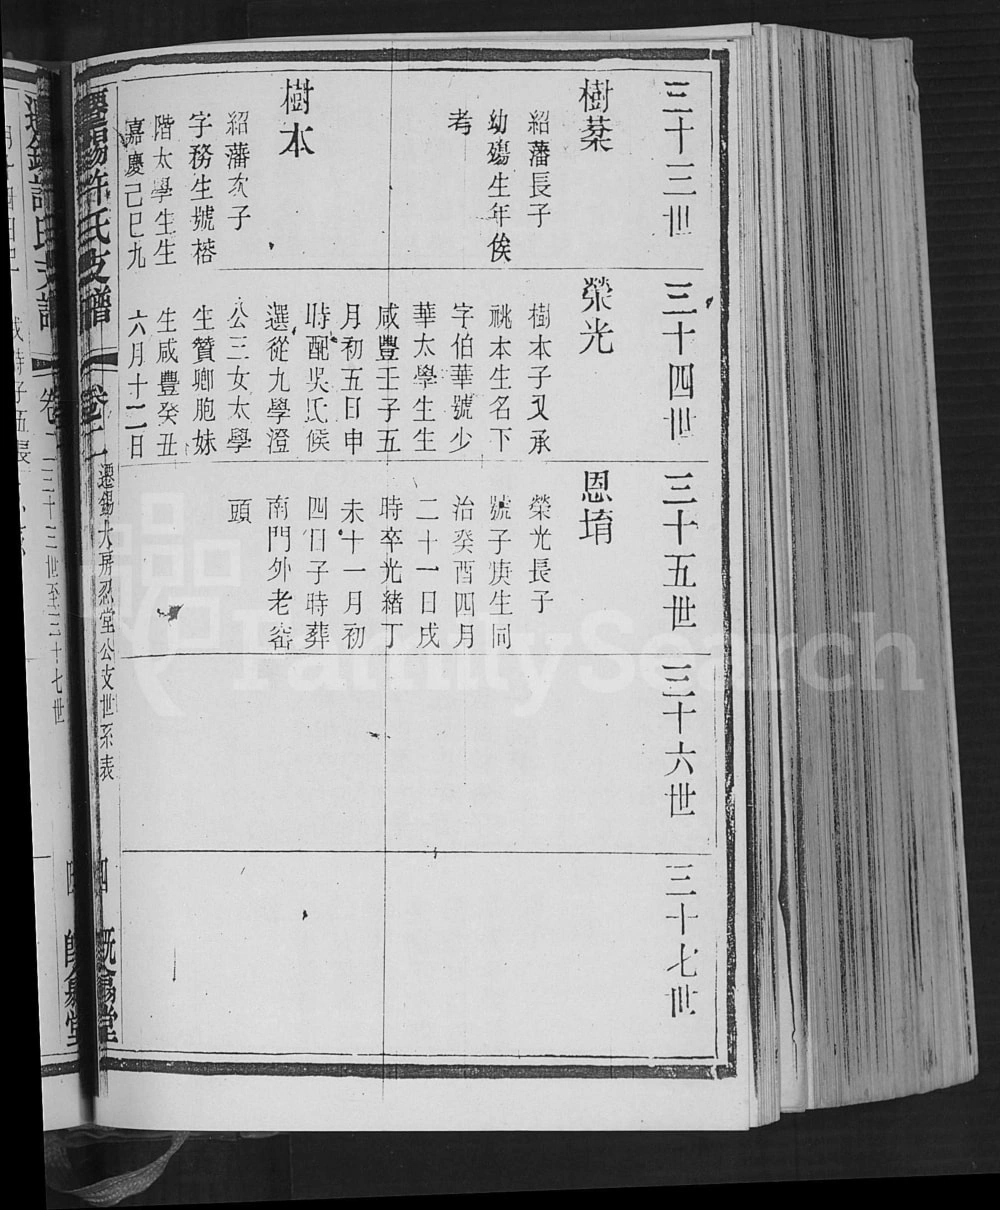 三十三世
樹棻
紹藩長子
幼殤生年俟
考
樹本
紹藩次子
字務生號榕
階太學生生
嘉慶己巳九
三十四世
榮光
樹本子又承
祧本生名下
字伯華號少
華太學生生
咸豐壬子五
月初五日申
時配吳氏候
選從九學澄
公三女太學
生贊卿胞妹
生咸豐癸丑
六月十二日
三十五世
恩堉
榮光長子
號子庚生同
治癸酉四月
二十一日戌
時卒光緒丁
未十一月初
四日子時葬
南門外老窑
頭
三十六世
三十七世
遷錫許氏支譜
卷二
遷錫大房忍堂公支世系表
四
三十三世至三十七世
FamilySearch